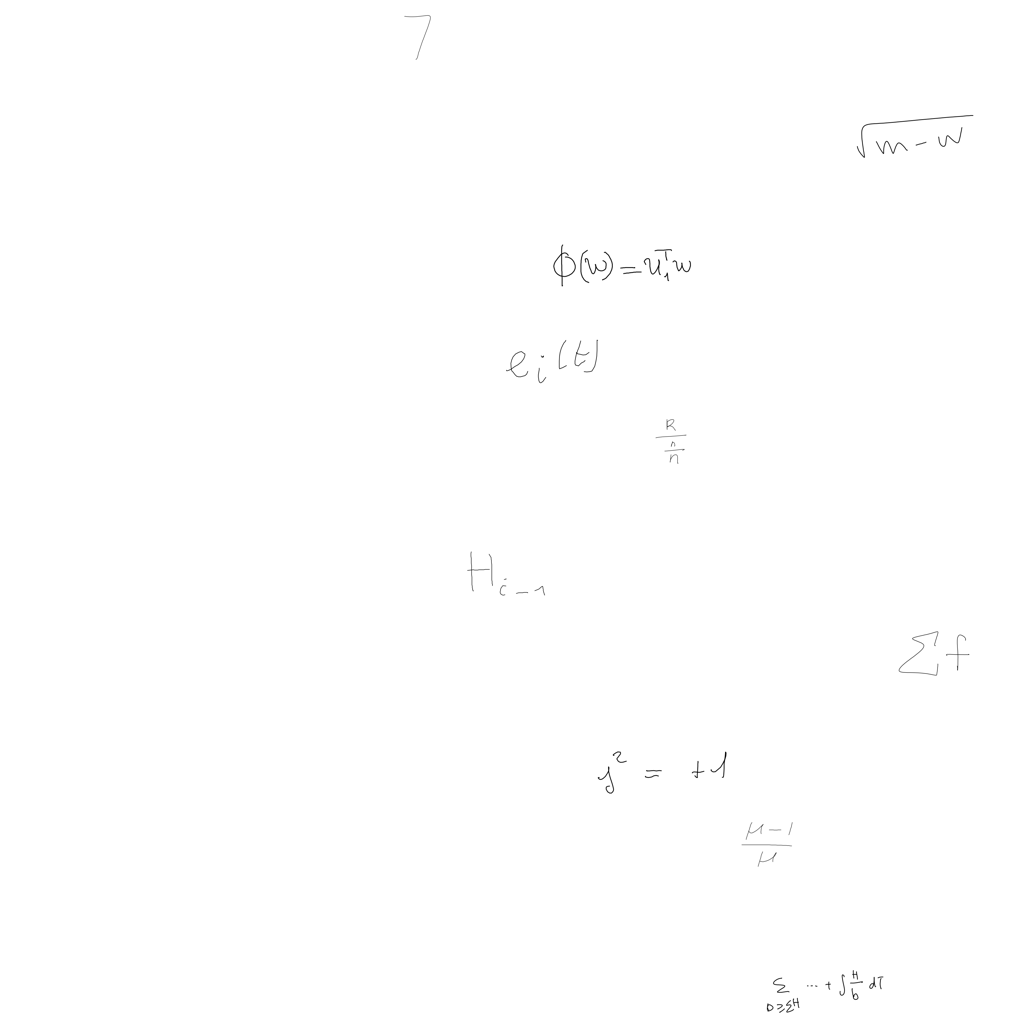 7
\sqrt{m-w}
\phi(w)=u_1^T w
e_i(t)
\frac{R}{\frac{n}{n}}
H_{i-1}
\sum f
j^2 = +1
\frac{\mu-1}{\mu}
\sum_{D \geq \Sigma^H} \cdots + \int \frac{H}{b} dT